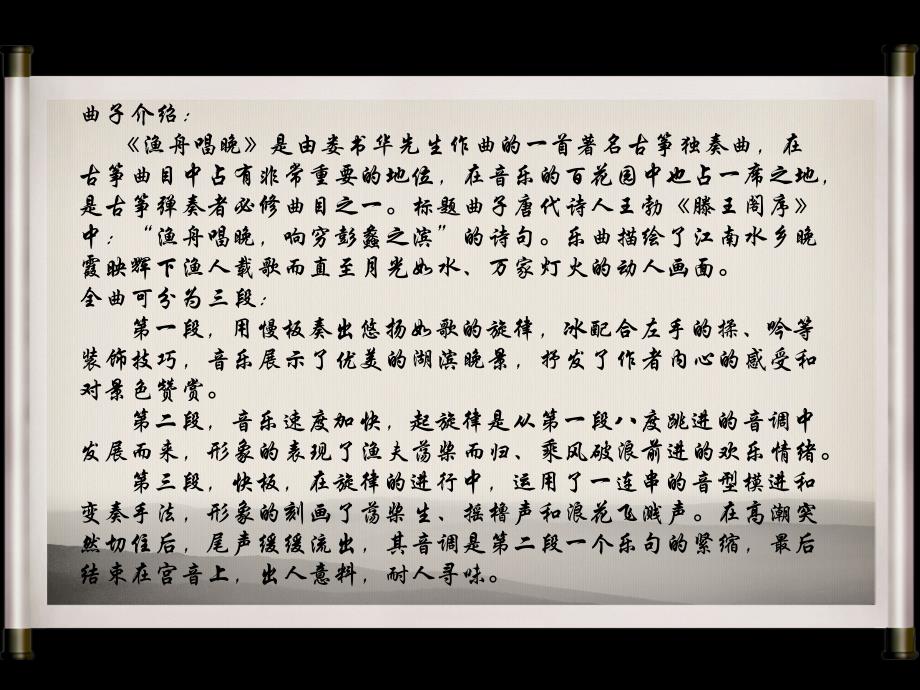 曲子介绍：
《渔舟唱晚》是由娄书华先生作曲的一首著名古筝独奏曲，在
古筝曲目中占有非常重要的地位，在音乐的百花园中也占一席之地，
是古筝弹奏者必修曲目之一。标题曲子唐代诗人王勃《滕王阁序》
中：“渔舟唱晚，响穷彭蠡之滨”的诗句。乐曲描绘了江南水乡晚
霞映辉下渔人载歌而直至月光如水、万家灯火的动人画面。
全曲可分为三段：
第一段，用慢板奏出悠扬如歌的旋律，冰配合左手的揉、吟等
装饰技巧，音乐展示了优美的湖滨晚景，抒发了作者内心的感受和
对景色赞赏。
第二段，音乐速度加快，起旋律是从第一段八度跳进的音调中
发展而来，形象的表现了渔夫荡桨而归、乘风破浪前进的欢乐情绪。
第三段，快板，在旋律的进行中，运用了一连串的音型模进和
变奏手法，形象的刻画了荡桨生、摇橹声和浪花飞溅声。在高潮突
然切住后，尾声缓缓流出，其音调是第二段一个乐句的紧缩，最后
结束在宫音上，出人意料，耐人寻味。